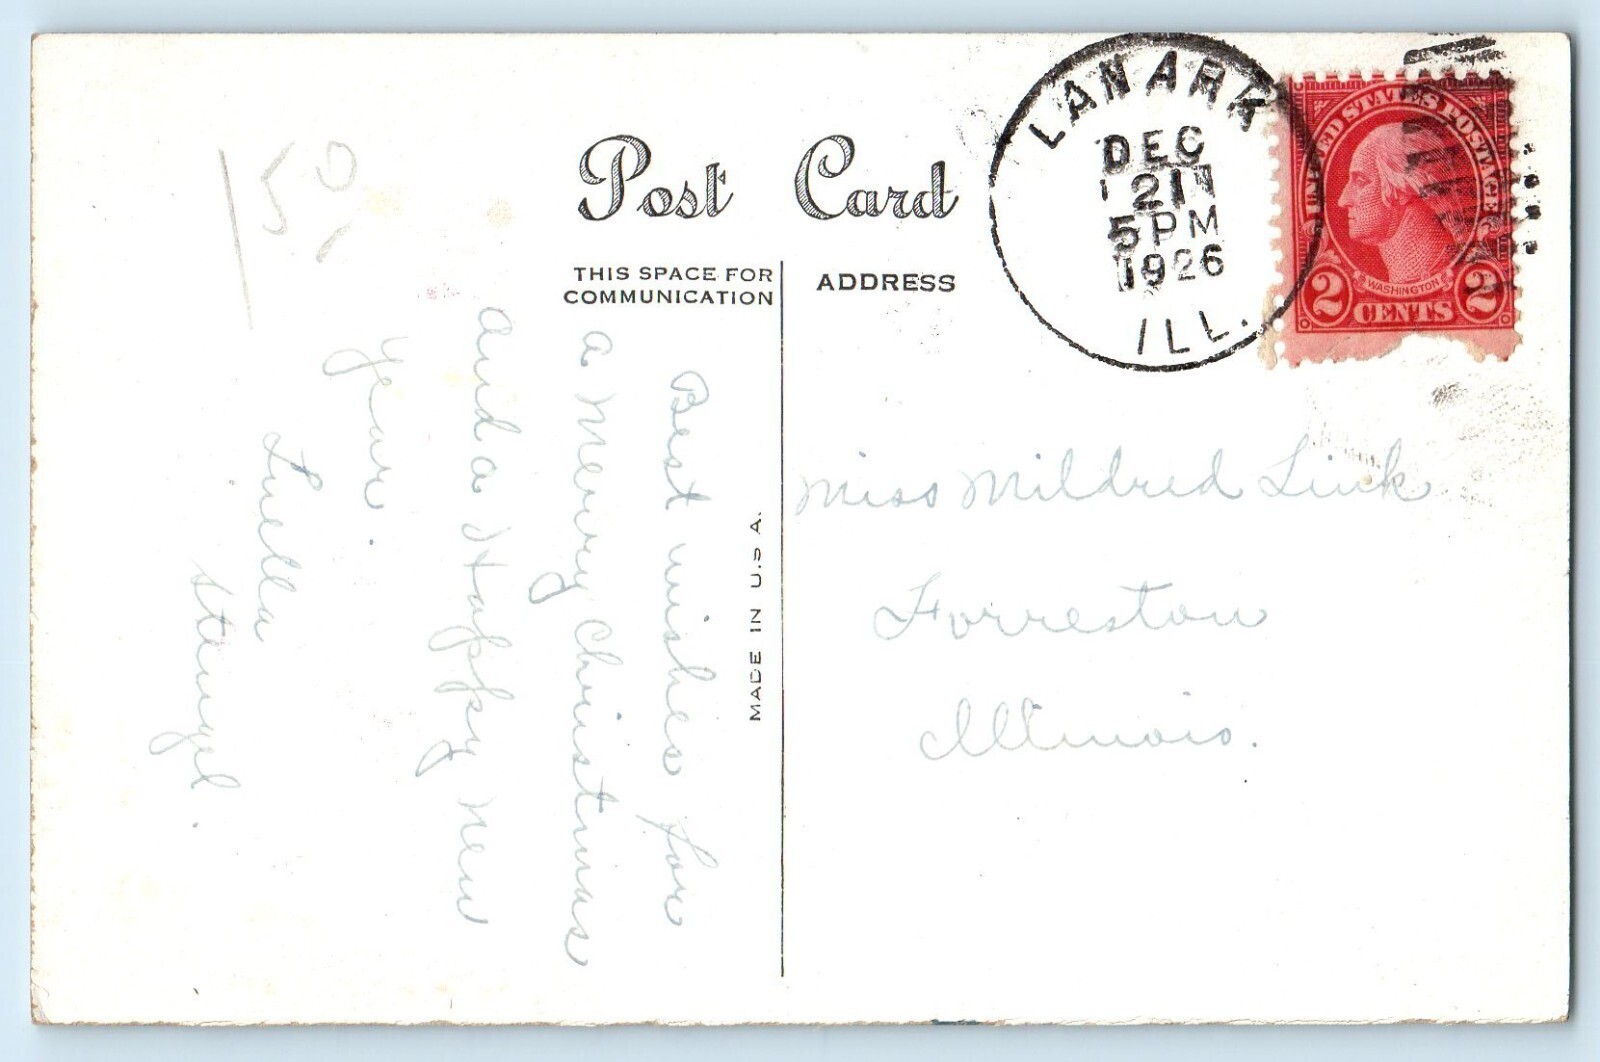 Post Card
THIS SPACE FOR
COMMUNICATION
ADDRESS
LANARK
DEC
21
5 PM
1926
ILL.
UNITED STATES POSTAGE
WASHINGTON
2 CENTS 2
Best wishes for
a Merry Christmas
and a Happy New
year.
Luella
Stengel.
MADE IN U.S.A.
Miss Mildred Link
Forreston
Illinois.